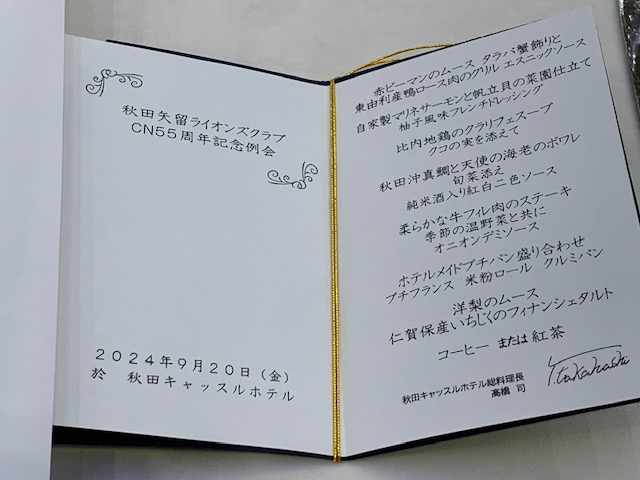 秋田矢留ライオンズクラブ
CN55周年記念例会
2024年9月20日（金）
於　秋田キャッスルホテル
赤ピーマンのムース　タラバ蟹飾りと
東由利産鴨ロース肉のグリル　エスニックソース
自家製マリネサーモンと帆立貝の菜園仕立て
柚子風味フレンチドレッシング
比内地鶏のクラリフェスープ
クコの実を添えて
秋田沖真鯛と天使の海老のポワレ
旬菜添え
純米酒入り紅白二色ソース
柔らかな牛フィレ肉のステーキ
季節の温野菜と共に
オニオンデミソース
ホテルメイドプチパン盛り合わせ
プチフランス　米粉ロール　クルミパン
洋梨のムース
仁賀保産いちじくのフィナンシェタルト
コーヒー　または　紅茶
秋田キャッスルホテル総料理長
高橋　司
Y.takahashi